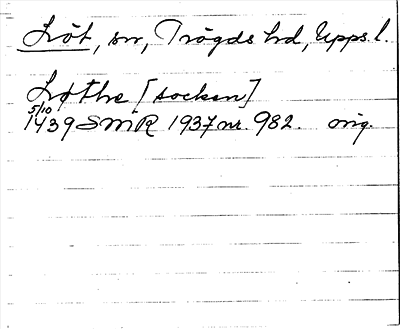 Löt, sn, Trögds hd, Upps. l.
Løthe [socken]
5/10
1439 SMR 1937 nr. 982. orig.